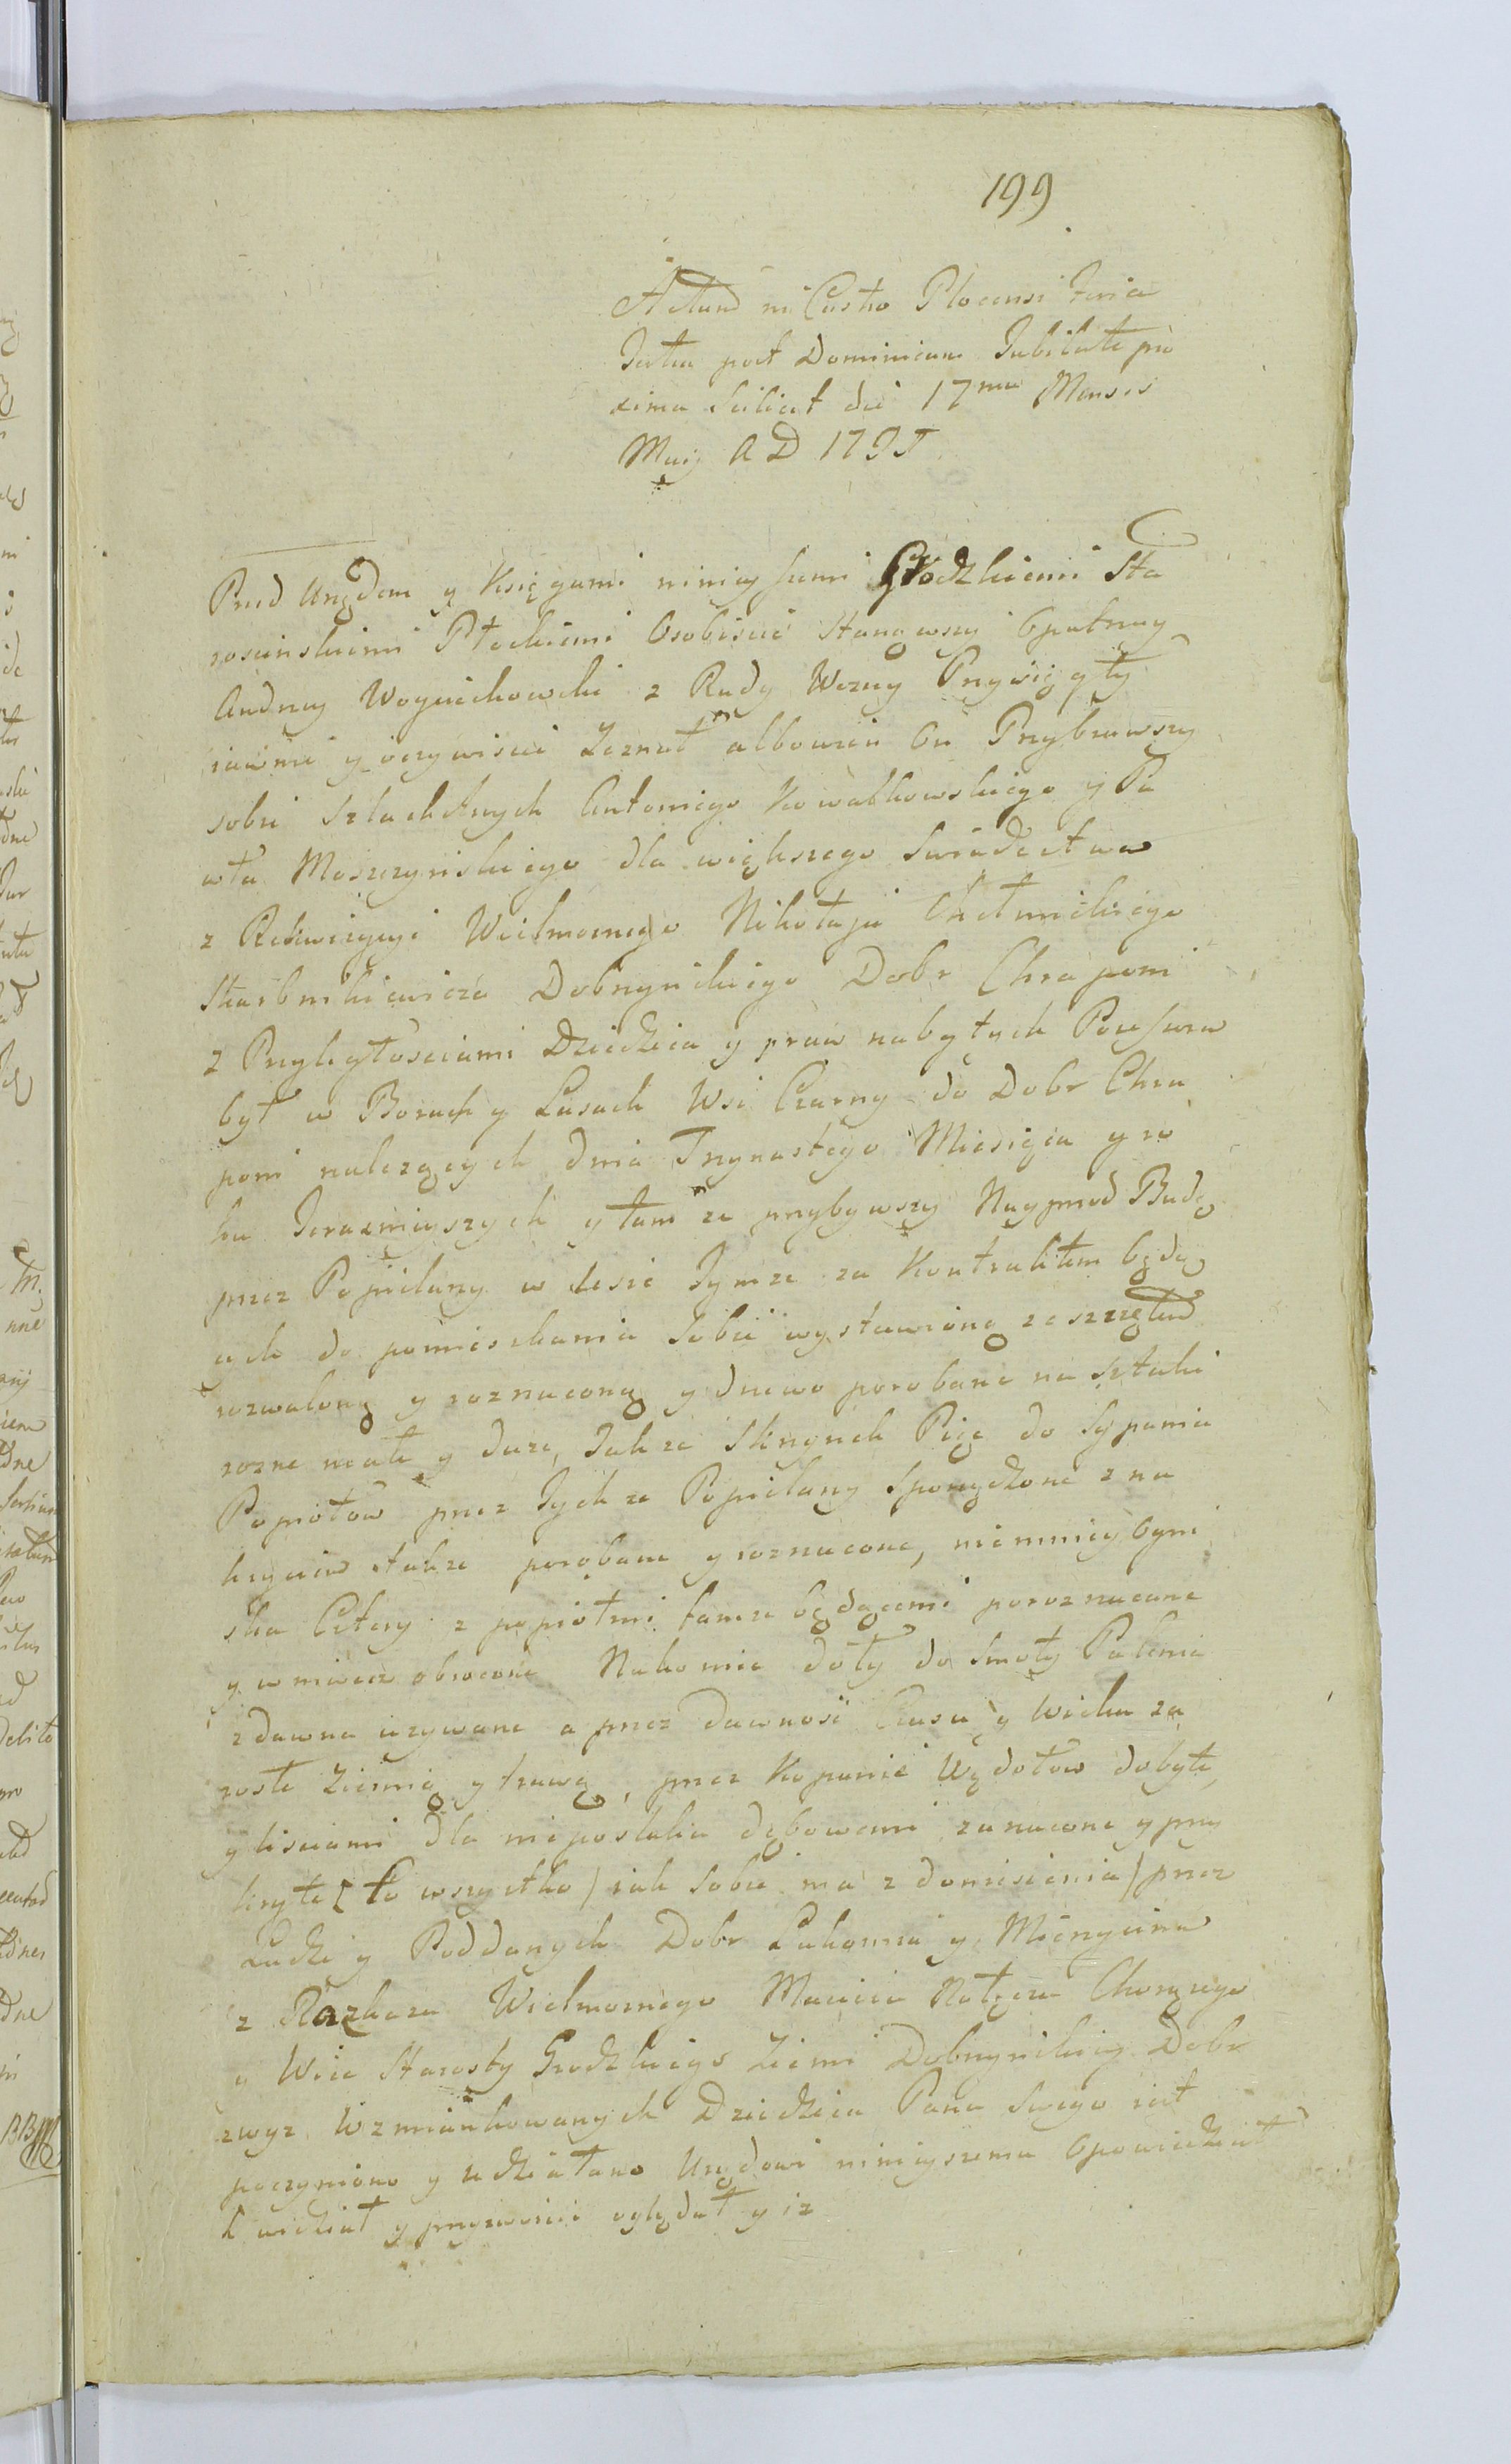 199
Actum in Castro Plocensi Feria
Tertia post Dominicam Jubilate pro
xima Scilicet die 17ma Mensis
Maij A D
Przed Urzędem y Księgami ninieyszemi Grodzkiemi Sta
roscinskiemi Płockiemi Osobiscie stanąwszy Opatrzny
Andrzey Woyciechowski z Rudy Wozny Przysięgły
iawnie y oczywiscie Zeznał albowiem On Przybrawszy
sobie Szlachetnych Antoniego Kowalkowskiego y Pa
wła Moszczynskiego dla większego Swiadectwa
z Rekwizycyi Wielmoznego Mikołaja Chełmickiego
Skarbnikiewicza Dobrzynskiego Dobr Chraponi
z Przyległosciami Dziedzica y praw nabytych Possessora
był w Borach y Lasach Wsi Czarny do Dobr Chra
poni nalezących dnia Trzynastego Miesiąca y ro
ku Terazniyszych y tam ze przybywszy Nayprzod Budę
przez Popielarzy w lesie Tymze za Kontraktem będą
cych do pomieszkania Sobie wystawioną ze szczętem
rozwaloną y rozrzuconą y drzewo porobane na sztuki
rozne małe y duze, Takze Skrzynek Pięc do Sypania
Popiołow przez Tychze Popielarzy Sporządzone z na
kryciem takze porąbane y rozrzucone, niemniey Ogni
ska Cztery z popiołmi tamze będącemi porozrzucane
y wniwecz obrocone Nakoniec doły do Smoły Palenia
zdawna uzywane a przez dawnosć Czasu y Wieku za
rosłe Ziemią y trawą, przez Kopanie Wądołow dobyte
y lisciami dla niepoślaku dębowemi zarzucone y przy
kryte [to wszystko / iak Sobie ma z doniesienia / przez
Ludzi y Poddanych Dobr Łukomia y Mierzęcina
z Rozkazu Wielmoznego Macieia Nałęcza Chorązego
y Wice Starosty Grodzkiego Ziemi Dobrzynskiey Dobr
zwyz Wzmiankowanych Dziedzica Pana Swego iest
poczyniono y zdziałano Urzędowi ninieyszemu Opowiedział
widział y przyzwoicie oględał y iz